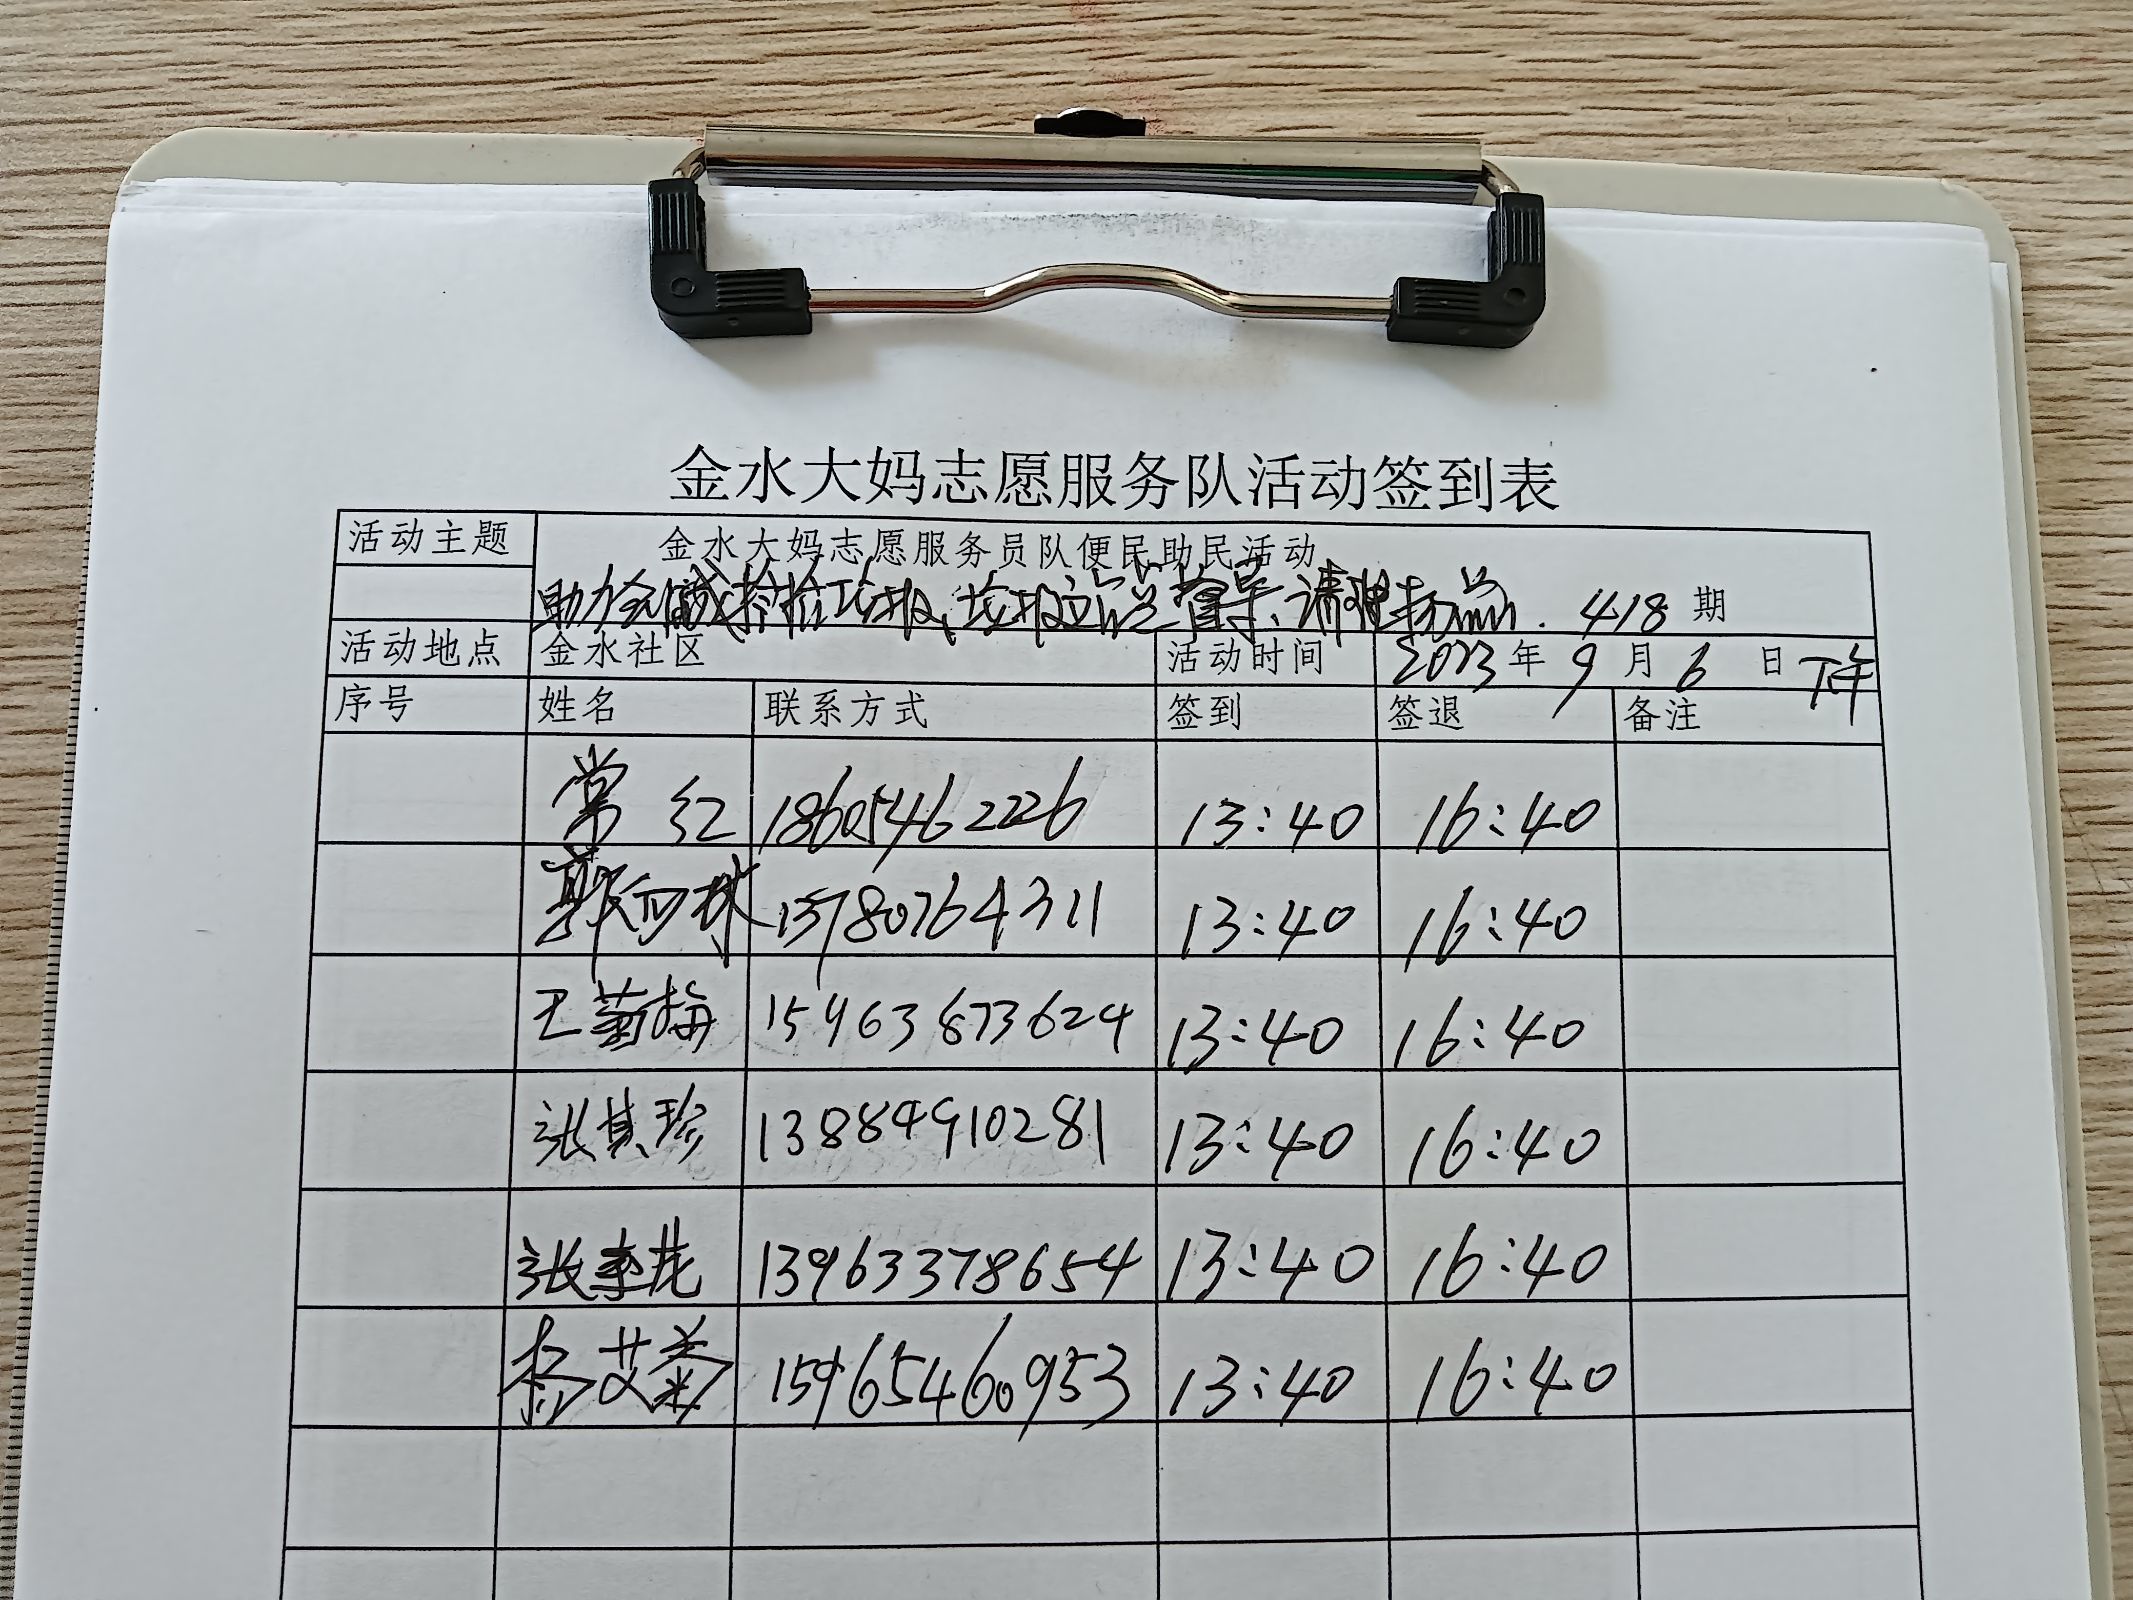 金水大妈志愿服务队活动签到表
活动主题 金水大妈志愿服务员队便民助民活动
助力 捡拾垃圾、垃圾站点督导、清理杂物. 418 期
活动地点 金水社区 活动时间 2023年 9月 6日 下午
序号 姓名 联系方式 签到 签退 备注
常红 18605462226 13:40 16:40
郭向球 13780764311 13:40 16:40
王菊梅 15963873624 13:40 16:40
张其珍 13884910281 13:40 16:40
张 花 13963378654 13:40 16:40
杨艾菊 15965460953 13:40 16:40